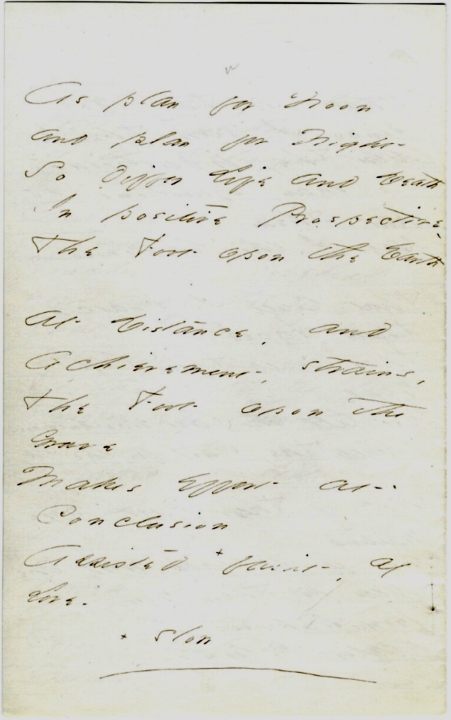 As plan for Noon
and plan for Night
So differ Life and Death
In positive Prospective
The Foot upon the Earth
At Distance, and
Achievement, strains,
The Foot upon the
Grave
Makes effort at
Conclusion
Assisted + faint, of
Love.
+ slow